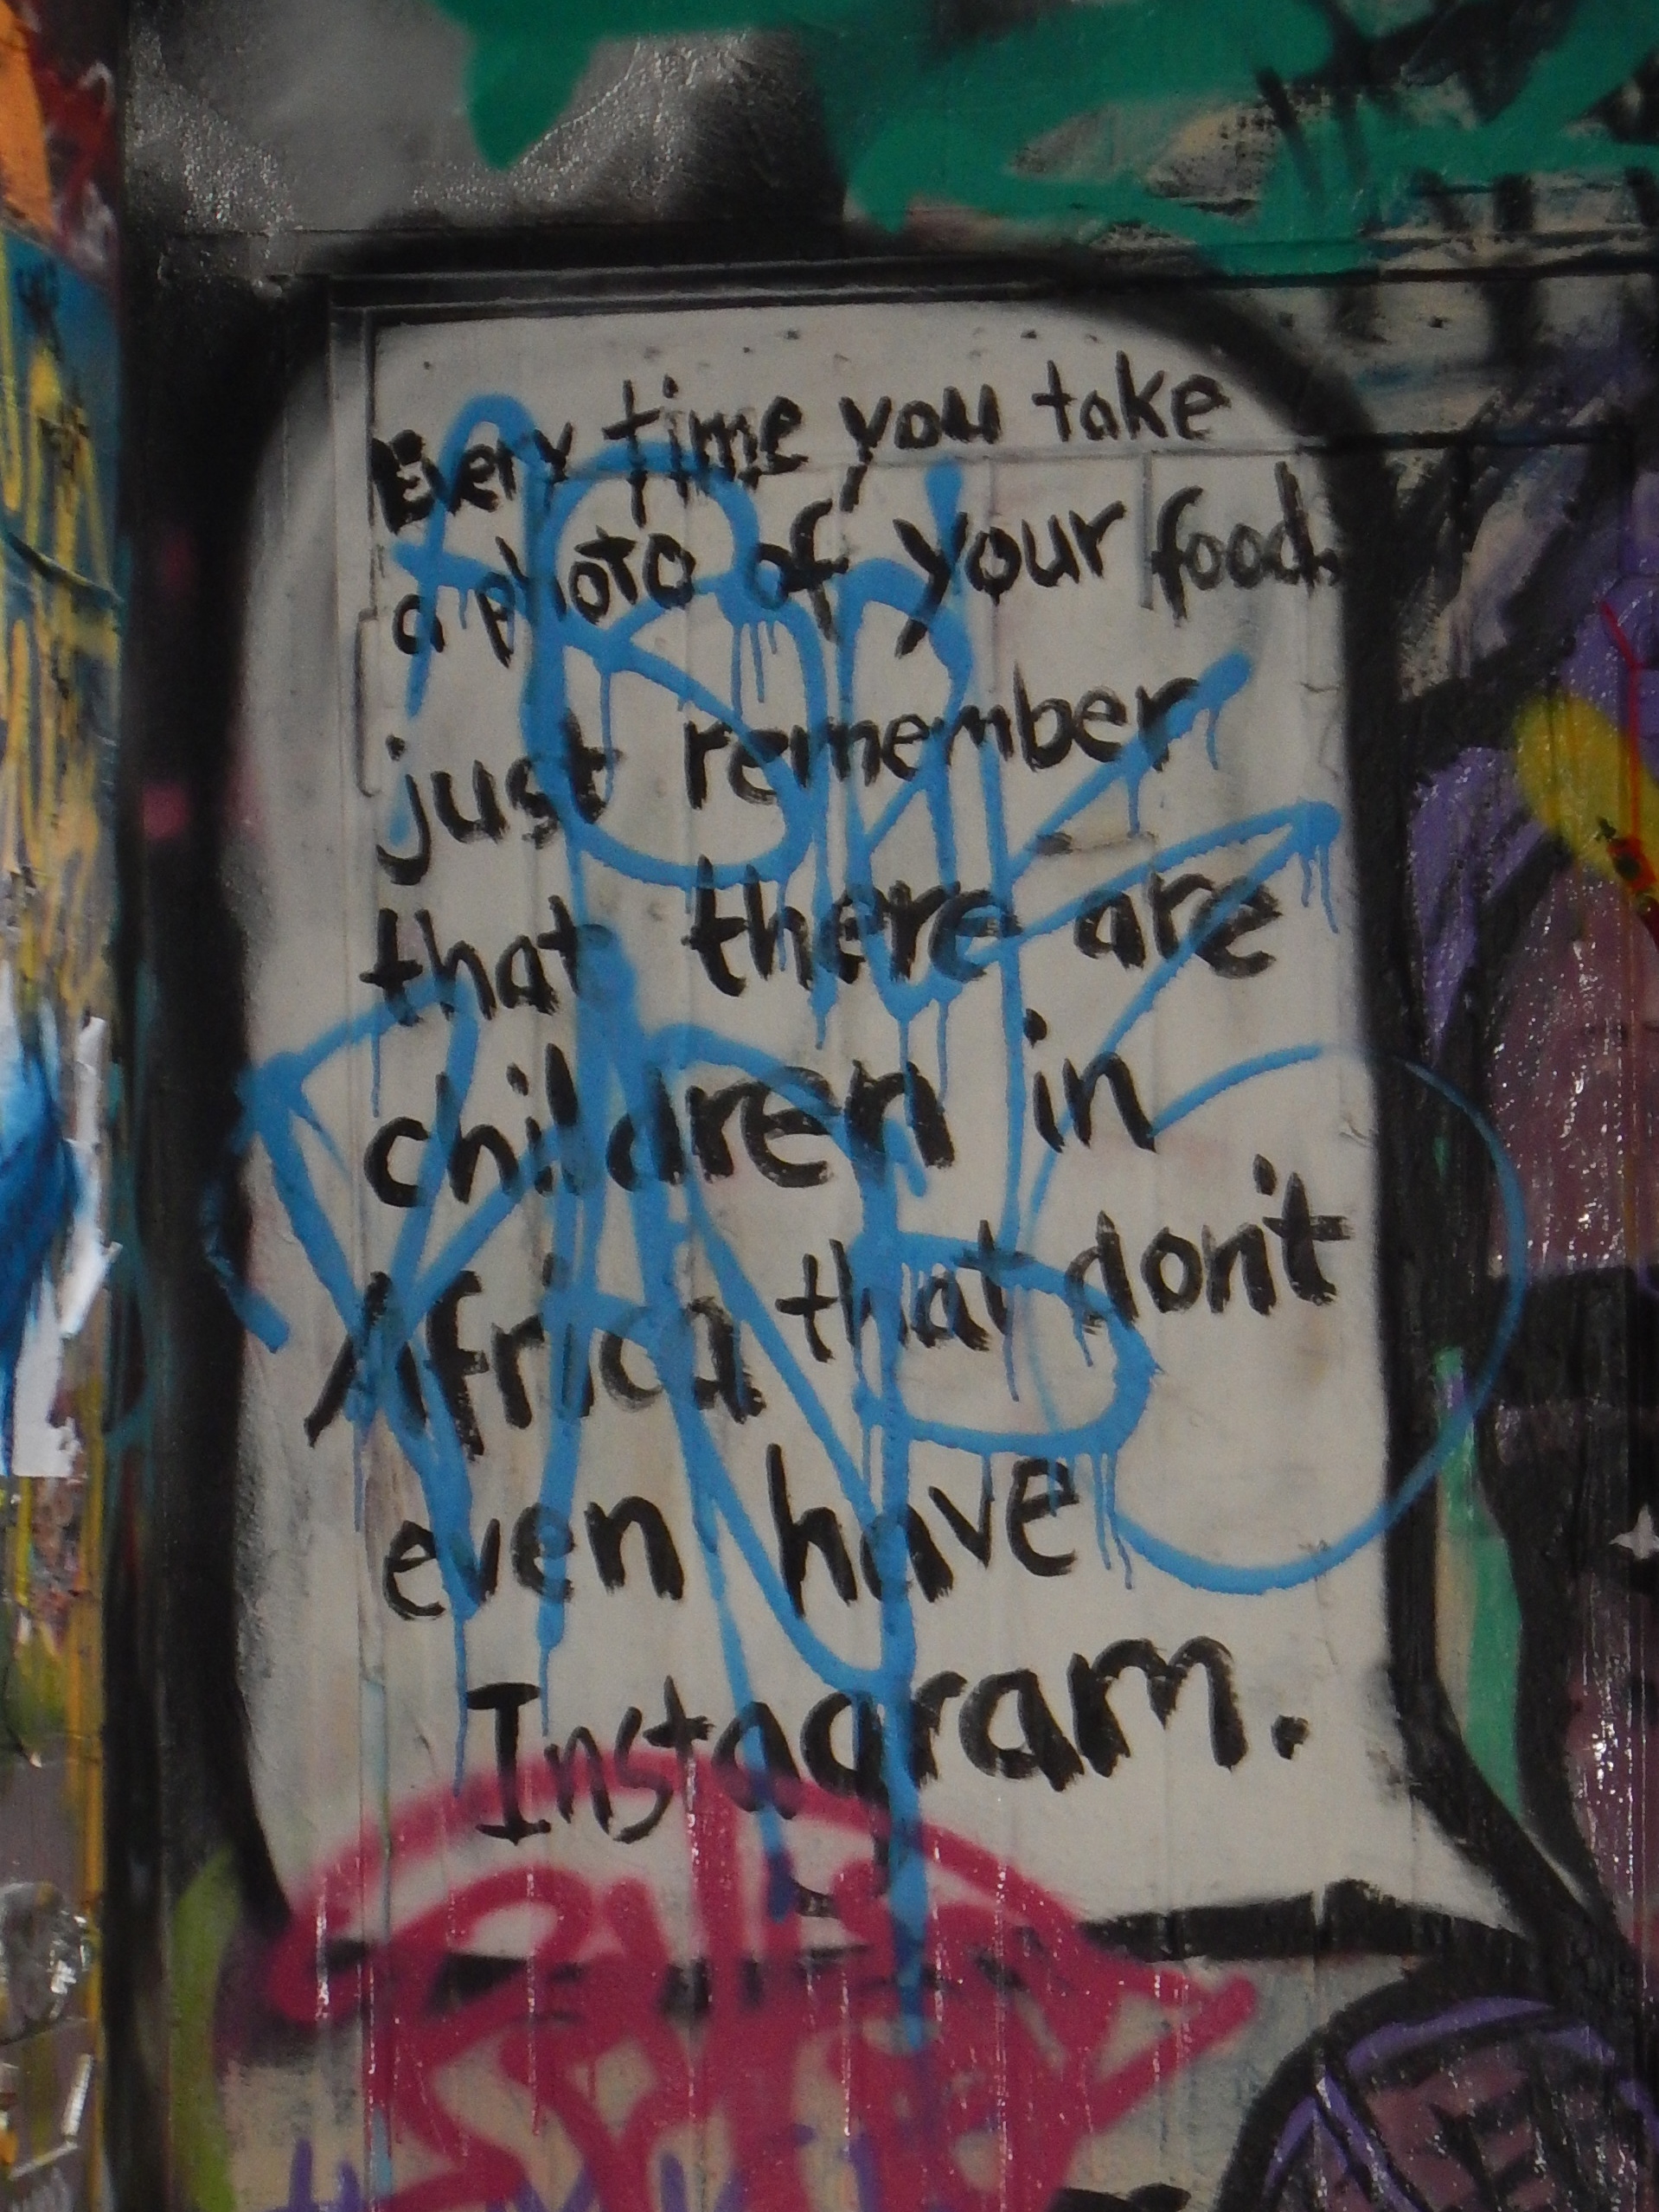 Every time you take
a photo of your food.
just remember
that there are
children in
Africa that don't
even have
Instagram.